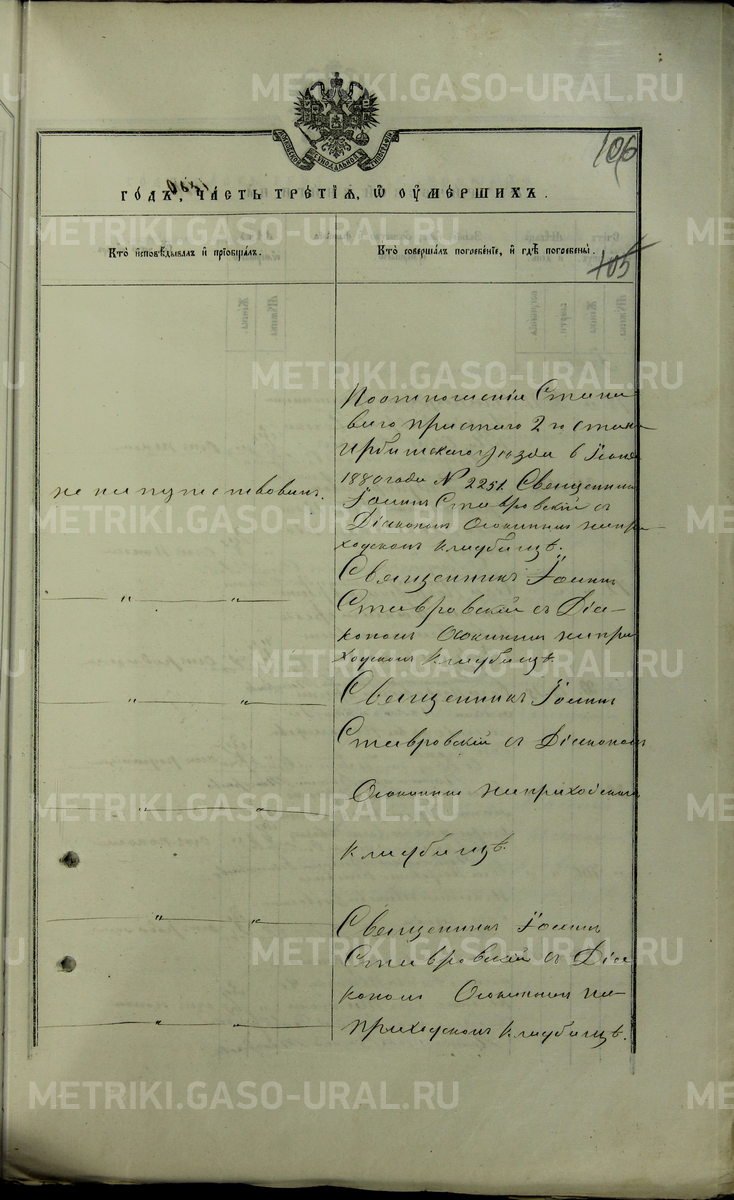 METRIKI.GASO-URAL.RU
106
1880
го́дъ, ча́сть тре́тїѧ, ѡ҆ оу҆ме́ршихъ.
Кто̀ и҆сповѣ́дывалъ и҆ прїѡбща́лъ.
Кто̀ соверша́лъ погребе́нїе, и҆ гдѣ̀ погребены̀.
105
По отношенію Стано-
ваго пристава 2 го стана
Ирбитскаго уѣзда 6 Іюня
1880 года № 2251. Священникъ
не напутствованъ.
Іоаннъ Ставровскій съ
Діакономъ Осокинымъ на при-
ходскомъ кладбищѣ.
Священникъ Іоаннъ
— " — " —
Ставровскій съ Діа-
кономъ Осокинымъ на при
ходскомъ кладбищѣ.
Священникъ Іоаннъ
— " — " —
Ставровскій съ Діакономъ
Осокинымъ на приходскомъ
— " — " —
кладбищѣ.
Священникъ Іоаннъ
— " — " —
Ставровскій съ Діа
кономъ Осокинымъ на
приходскомъ кладбищѣ.
— " — " —